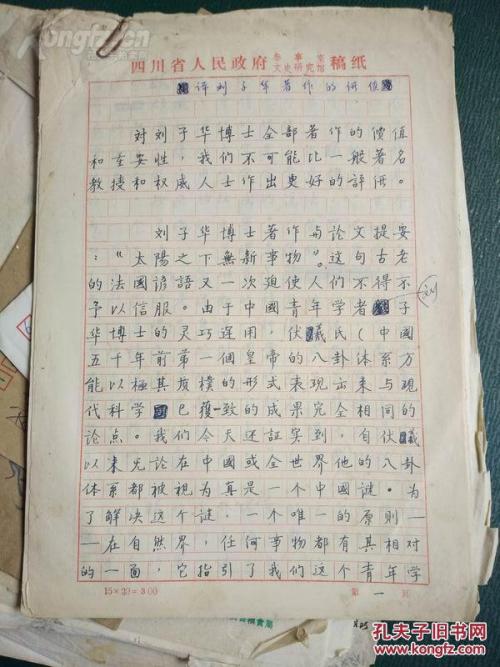 Kongfz.com
孔夫子旧书网
四川省人民政府 参事室 文史研究馆 稿纸
评刘子华著作的价值
对刘子华博士全部著作的價值
和重要性，我们不可能比一般著名
教授和权威人士作出更好的評價。
刘子华博士著作与论文提要
：“太陽之下無新事物”。这句古老
的法國諺語又一次迫使人们不得不
予以信服。由于中國青年学者 子
刘
华博士的灵巧运用，伏羲氏（中國
五千年前第一個皇帝的八卦体系方
能以極其質樸的形式表現出来与現
代科学已獲一致的成果完全相同的
论点。我们今天还証实到，自伏羲
以来无論在中國或全世界他的八卦
体系都被視为真是一个中國謎。为
了解决这个謎，一个唯一的原则—
—在自然界，任何事物都有其相对
的一面，它指引了我们这个青年学
15×20=300
第 一 页
孔夫子旧书网
www.kongfz.com